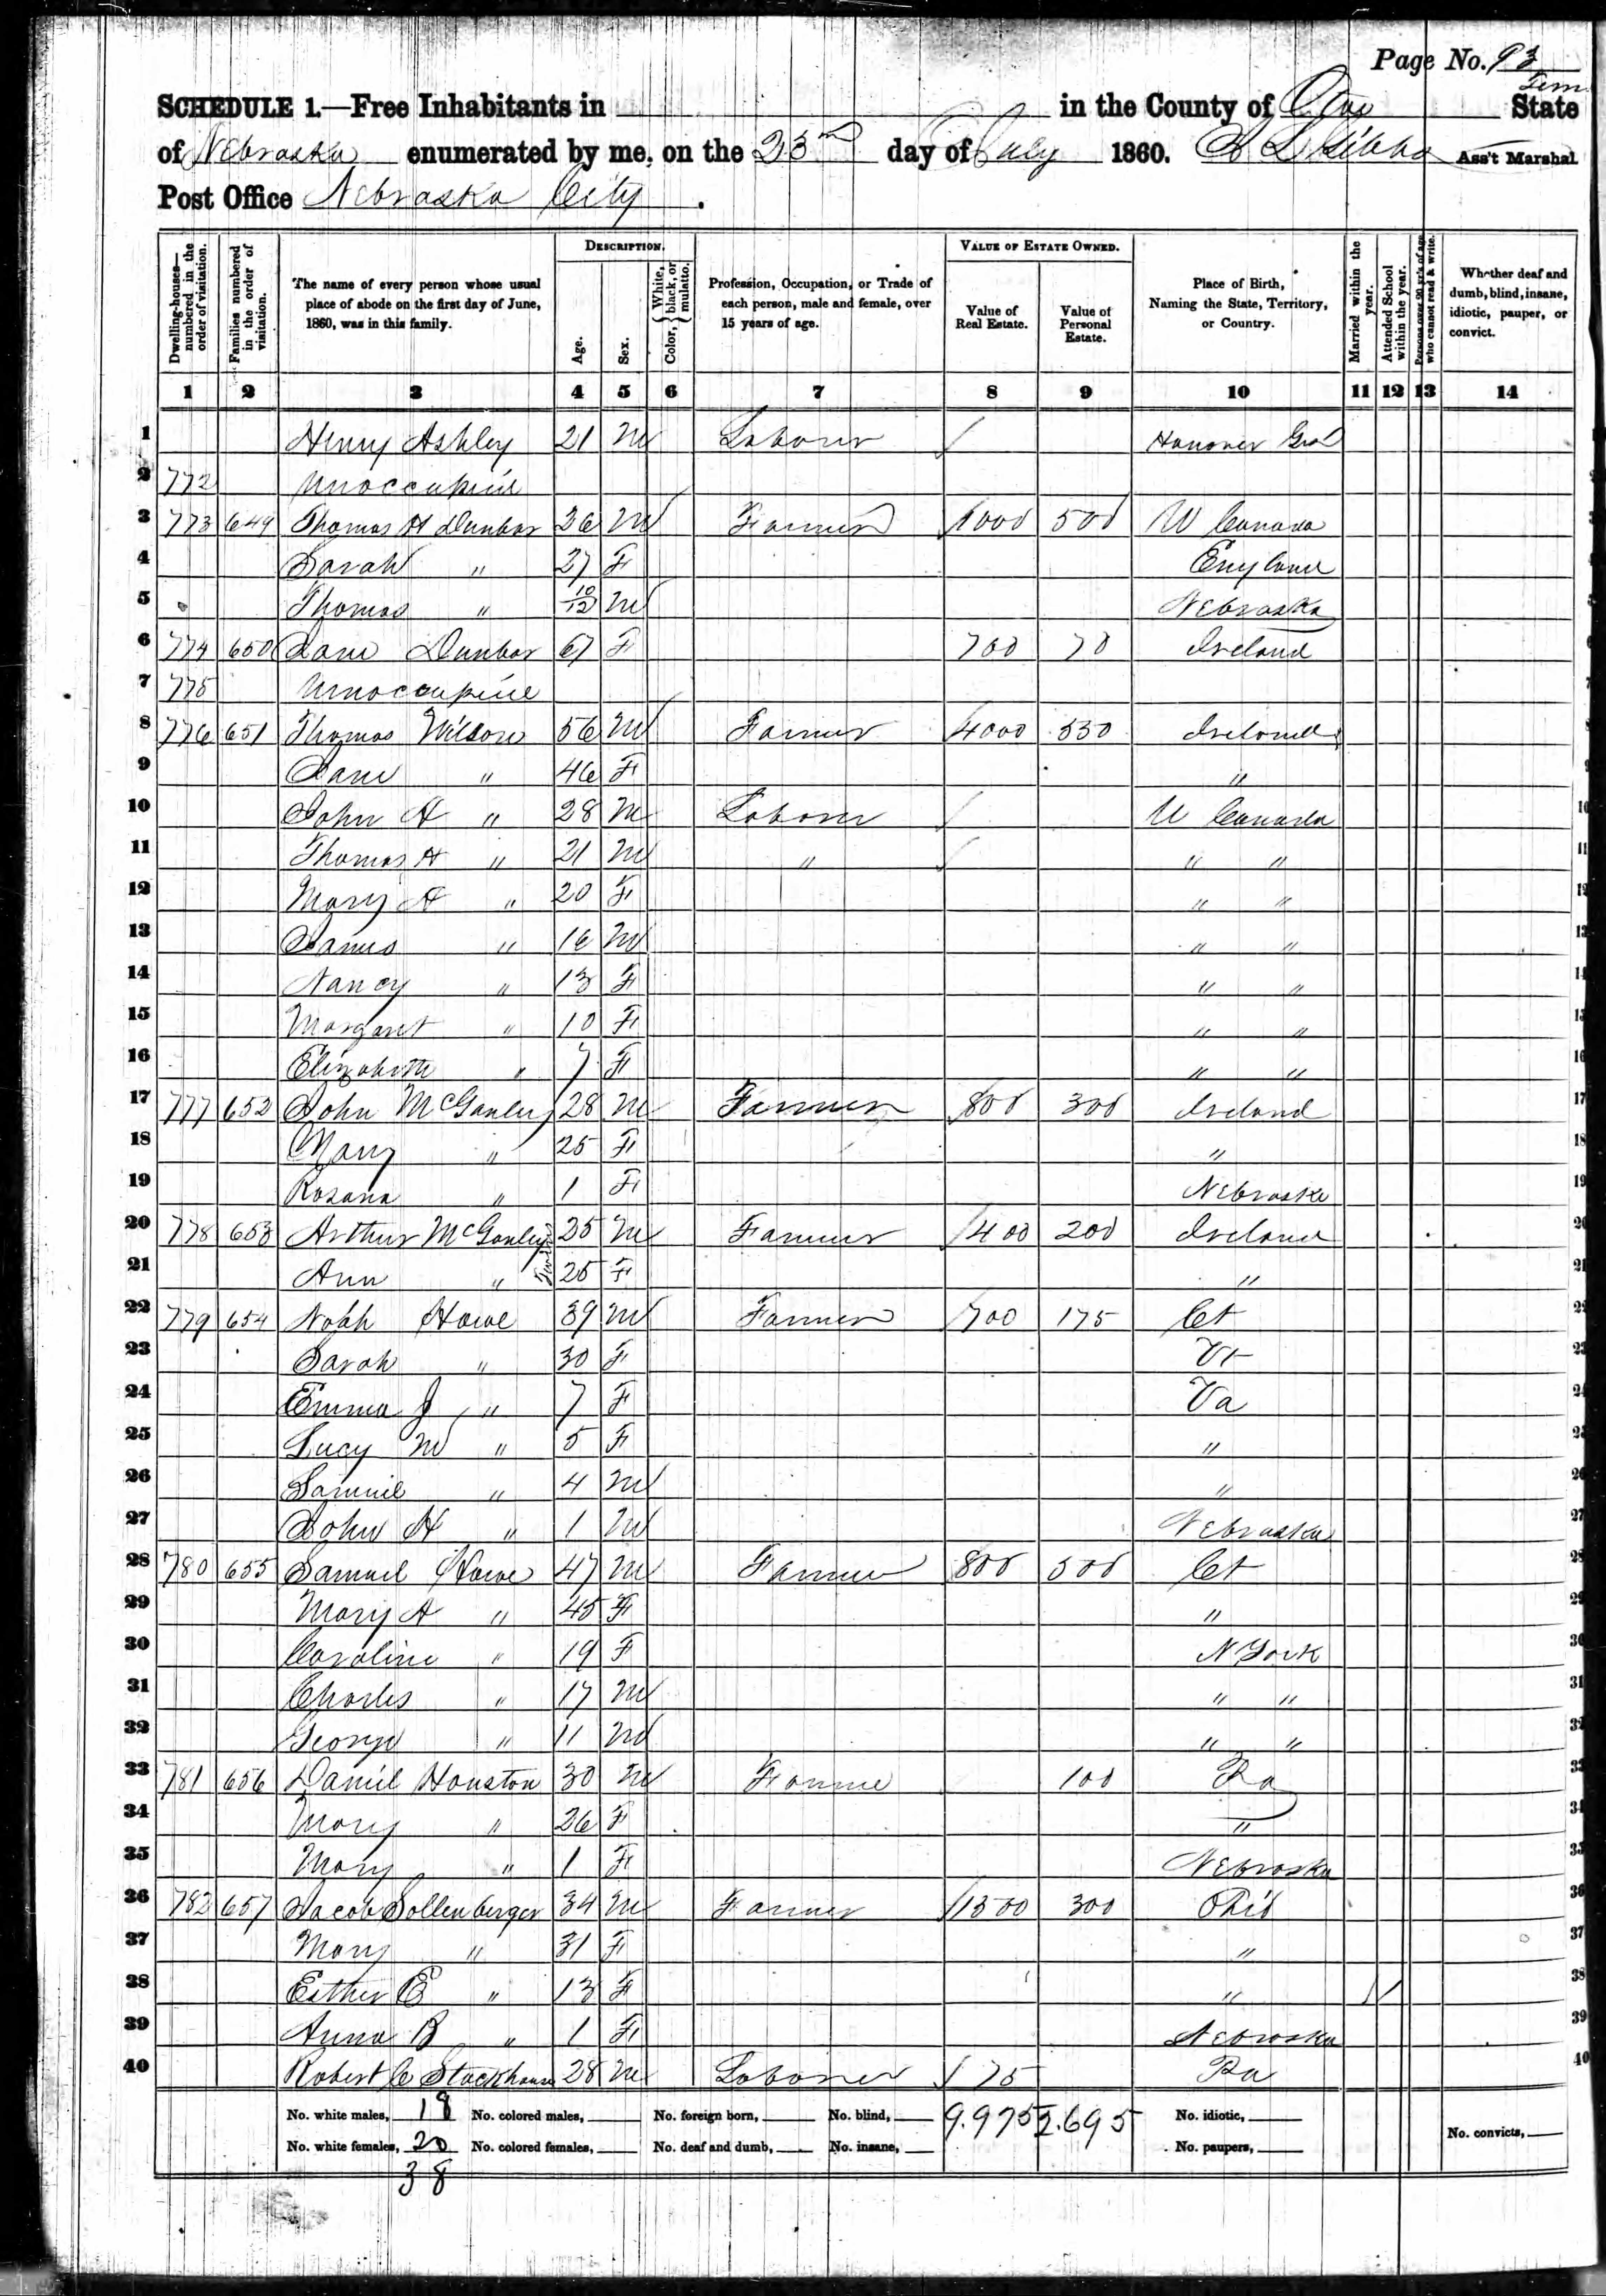 Page No. 93
SCHEDULE 1.—Free Inhabitants in in the County of Otoe State
of Nebraska enumerated by me, on the 23rd day of July 1860. Ass't Marshal.
Post Office Nebraska City.
DESCRIPTION.
VALUE OF ESTATE OWNED.
Dwelling-houses—numbered in the order of visitation.
Families numbered in the order of visitation.
The name of every person whose usual place of abode on the first day of June, 1860, was in this family.
Age.
Sex.
Color, White, black, or mulatto.
Profession, Occupation, or Trade of each person, male and female, over 15 years of age.
Value of Real Estate.
Value of Personal Estate.
Place of Birth, Naming the State, Territory, or Country.
Married within the year.
Attended School within the year.
Persons over 20 y'rs of age who cannot read & write.
Whether deaf and dumb, blind, insane, idiotic, pauper, or convict.
1 2 3 4 5 6 7 8 9 10 11 12 13 14
1 Henry Ashley 21 M Laborer Hanover
2 772 Unoccupied
3 773 649 Thomas H Dunbar 26 M Farmer 1000 500 U Canada
4 Sarah " 27 F England
5 Thomas " 10/12 M Nebraska
6 774 650 Jane Dunbar 67 F 700 70 Ireland
7 775 Unoccupied
8 776 651 Thomas Wilson 56 M Farmer 4000 550 Ireland
9 Jane " 46 F "
10 John A " 28 M Laborer U Canada
11 Thomas H " 21 M " " "
12 Mary A " 20 F " "
13 James " 16 M " "
14 Nancy " 13 F " "
15 Margaret " 10 F " "
16 Elizabeth " 7 F " "
17 777 652 John McGanley 28 M Farmer 800 300 Ireland
18 Mary " 25 F "
19 Rosana " 1 F Nebraska
20 778 653 Arthur McGanley 25 M Farmer 400 200 Ireland
21 Ann " 25 F "
22 779 654 Noah Howe 39 M Farmer 700 175 Ct
23 Sarah " 30 F Vt
24 Emma J " 7 F Va
25 Lucy M " 5 F "
26 Samuel " 4 M "
27 John H " 1 M Nebraska
28 780 655 Samuel Howe 47 M Farmer 800 500 Ct
29 Mary A " 45 F "
30 Caroline " 19 F N York
31 Charles " 17 M " "
32 George " 11 M " "
33 781 656 Daniel Houston 30 M Farmer 100 Pa
34 Mary " 26 F "
35 Mary " 1 F Nebraska
36 782 657 Jacob Sollenberger 34 M Farmer 1500 300 Ohio
37 Mary " 31 F "
38 Esther E " 13 F " /
39 Anna B " 1 F Nebraska
40 Robert C Stackhouse 28 M Laborer 75 Pa
No. white males, 18 No. colored males, No. foreign born, No. blind, 9.975 2.695 No. idiotic,
No. white females, 20 No. colored females, No. deaf and dumb, No. insane, No. paupers, No. convicts,
38